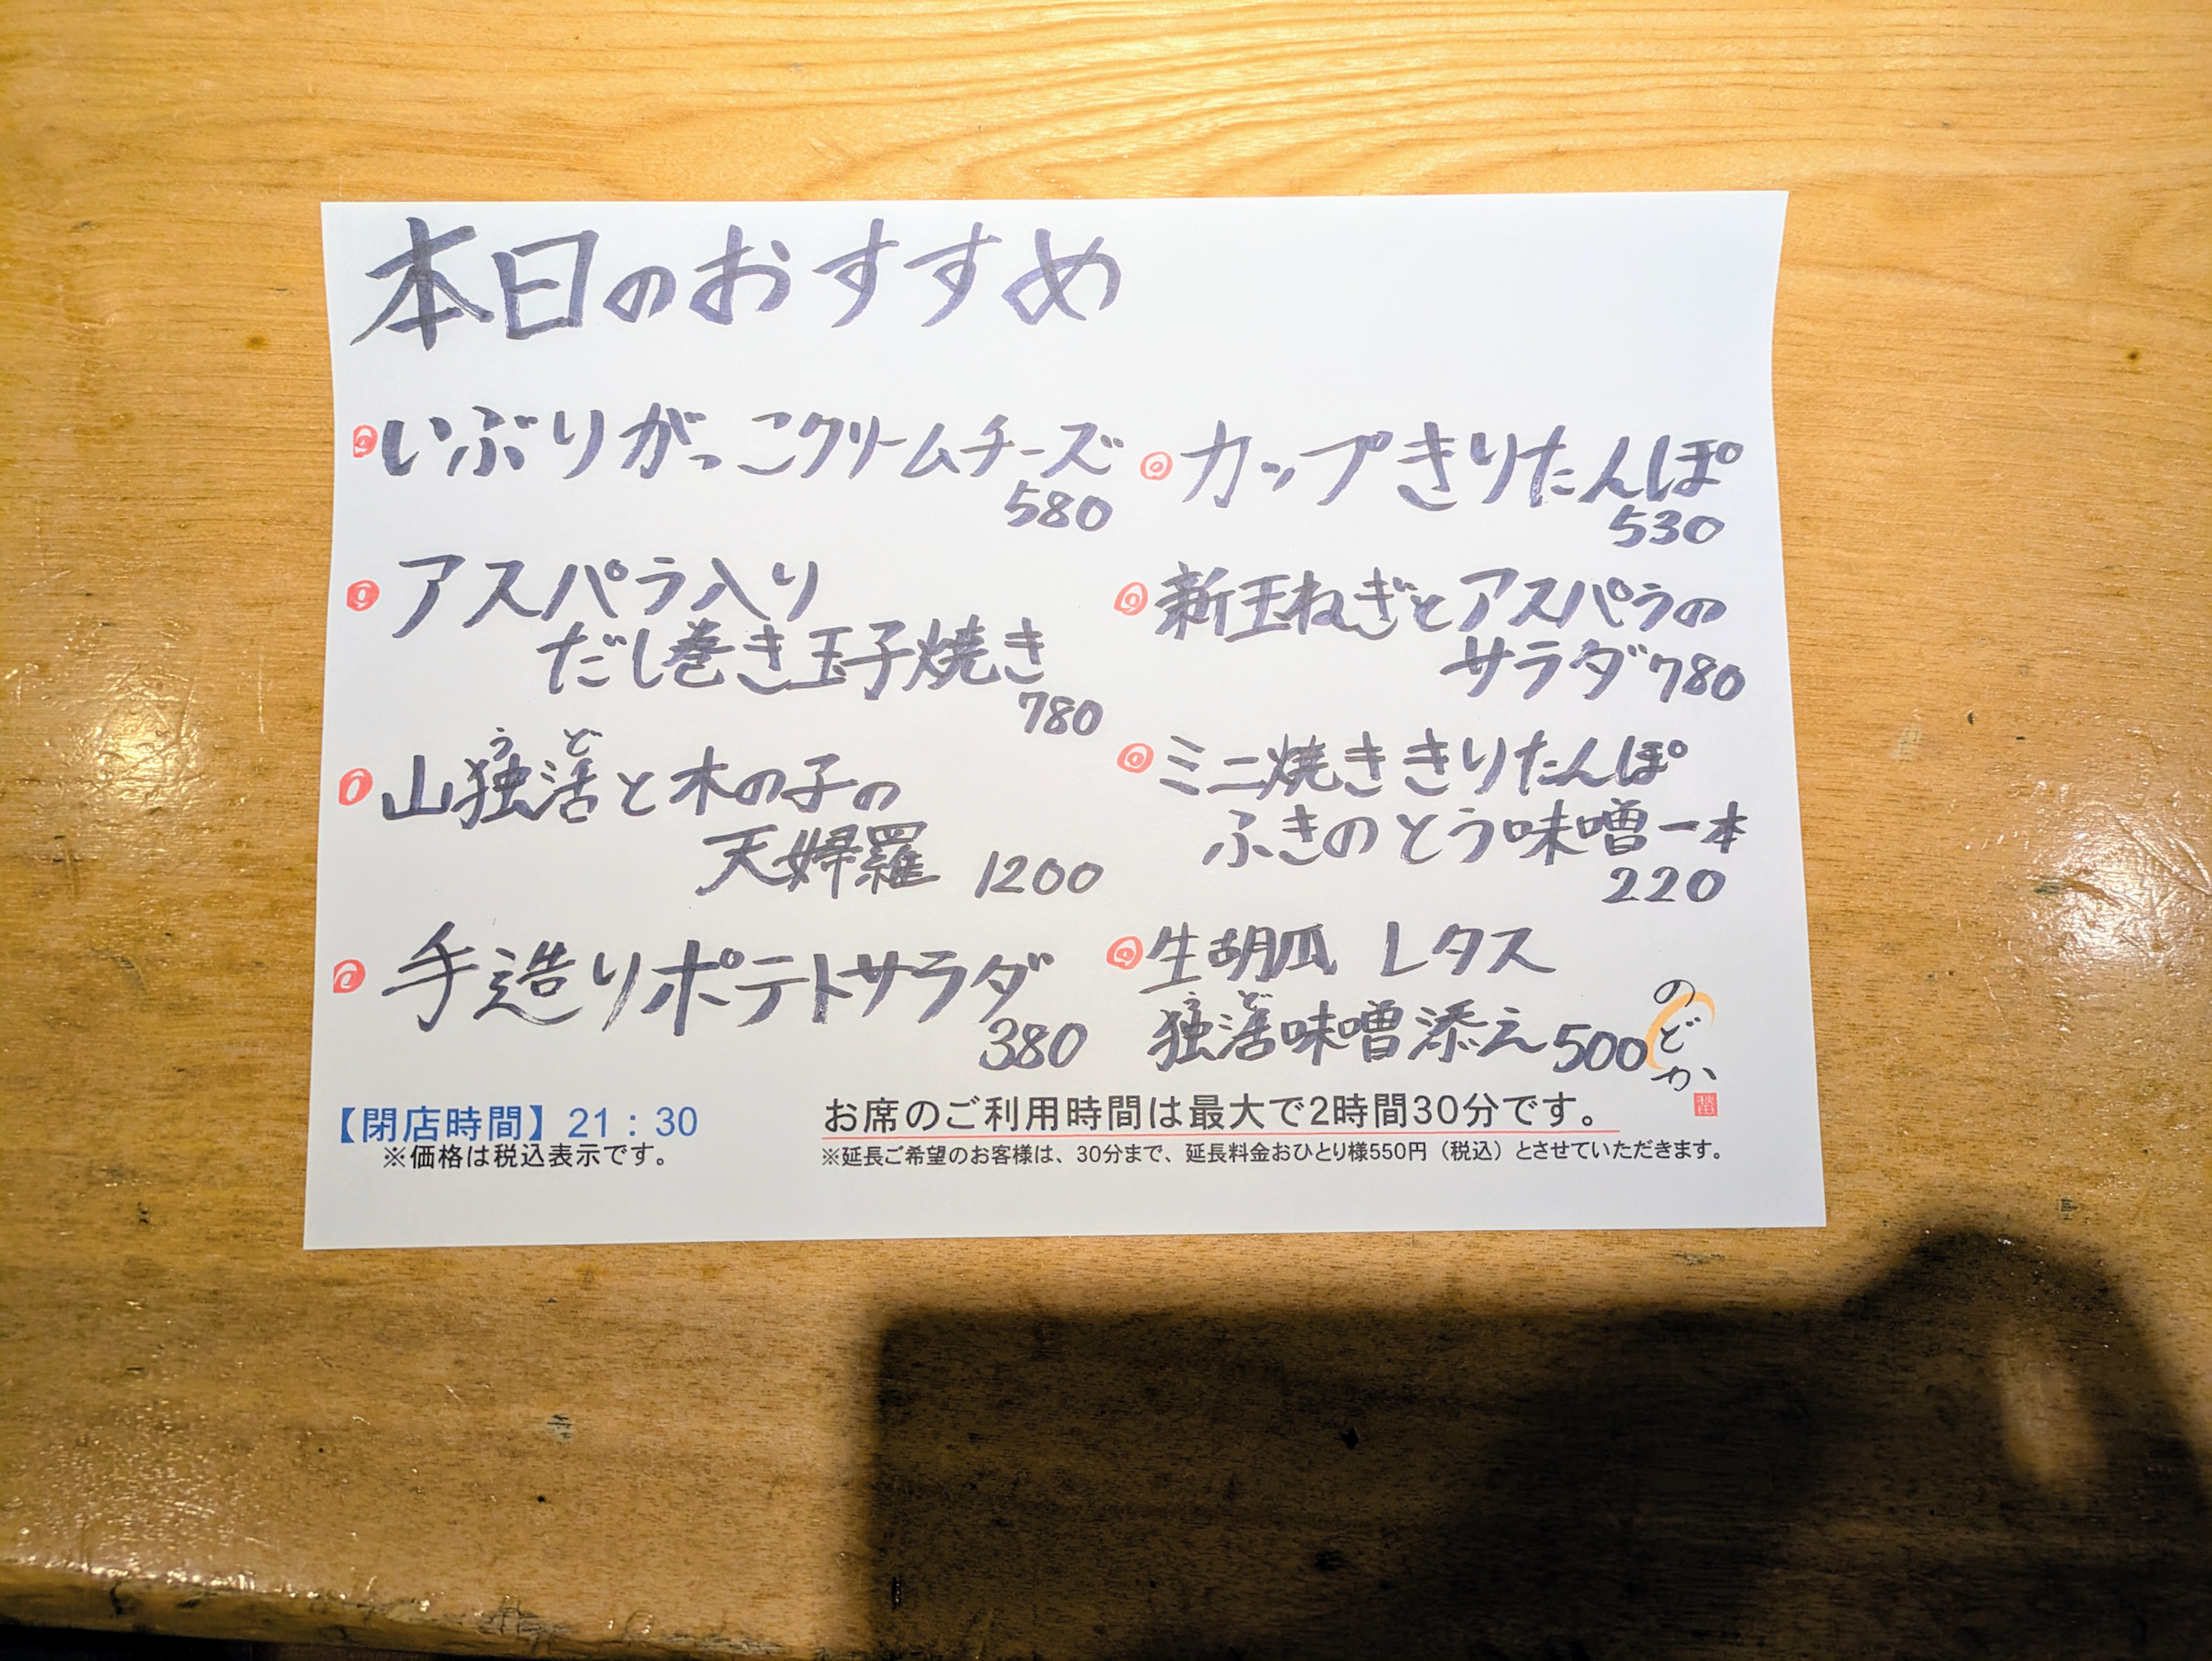 本日のおすすめ
いぶりがっこクリームチーズ
580
アスパラ入り
だし巻き玉子焼き
780
うど
山独活と木の子の
天婦羅 1200
手造りポテトサラダ
380
カップきりたんぽ
530
新玉ねぎとアスパラの
サラダ 780
ミニ焼ききりたんぽ
ふきのとう味噌一本
220
生胡瓜 レタス
うど
独活味噌添え 500
のどか
【閉店時間】21：30
※価格は税込表示です。
お席のご利用時間は最大で2時間30分です。
※延長ご希望のお客様は、30分まで、延長料金おひとり様550円（税込）とさせていただきます。